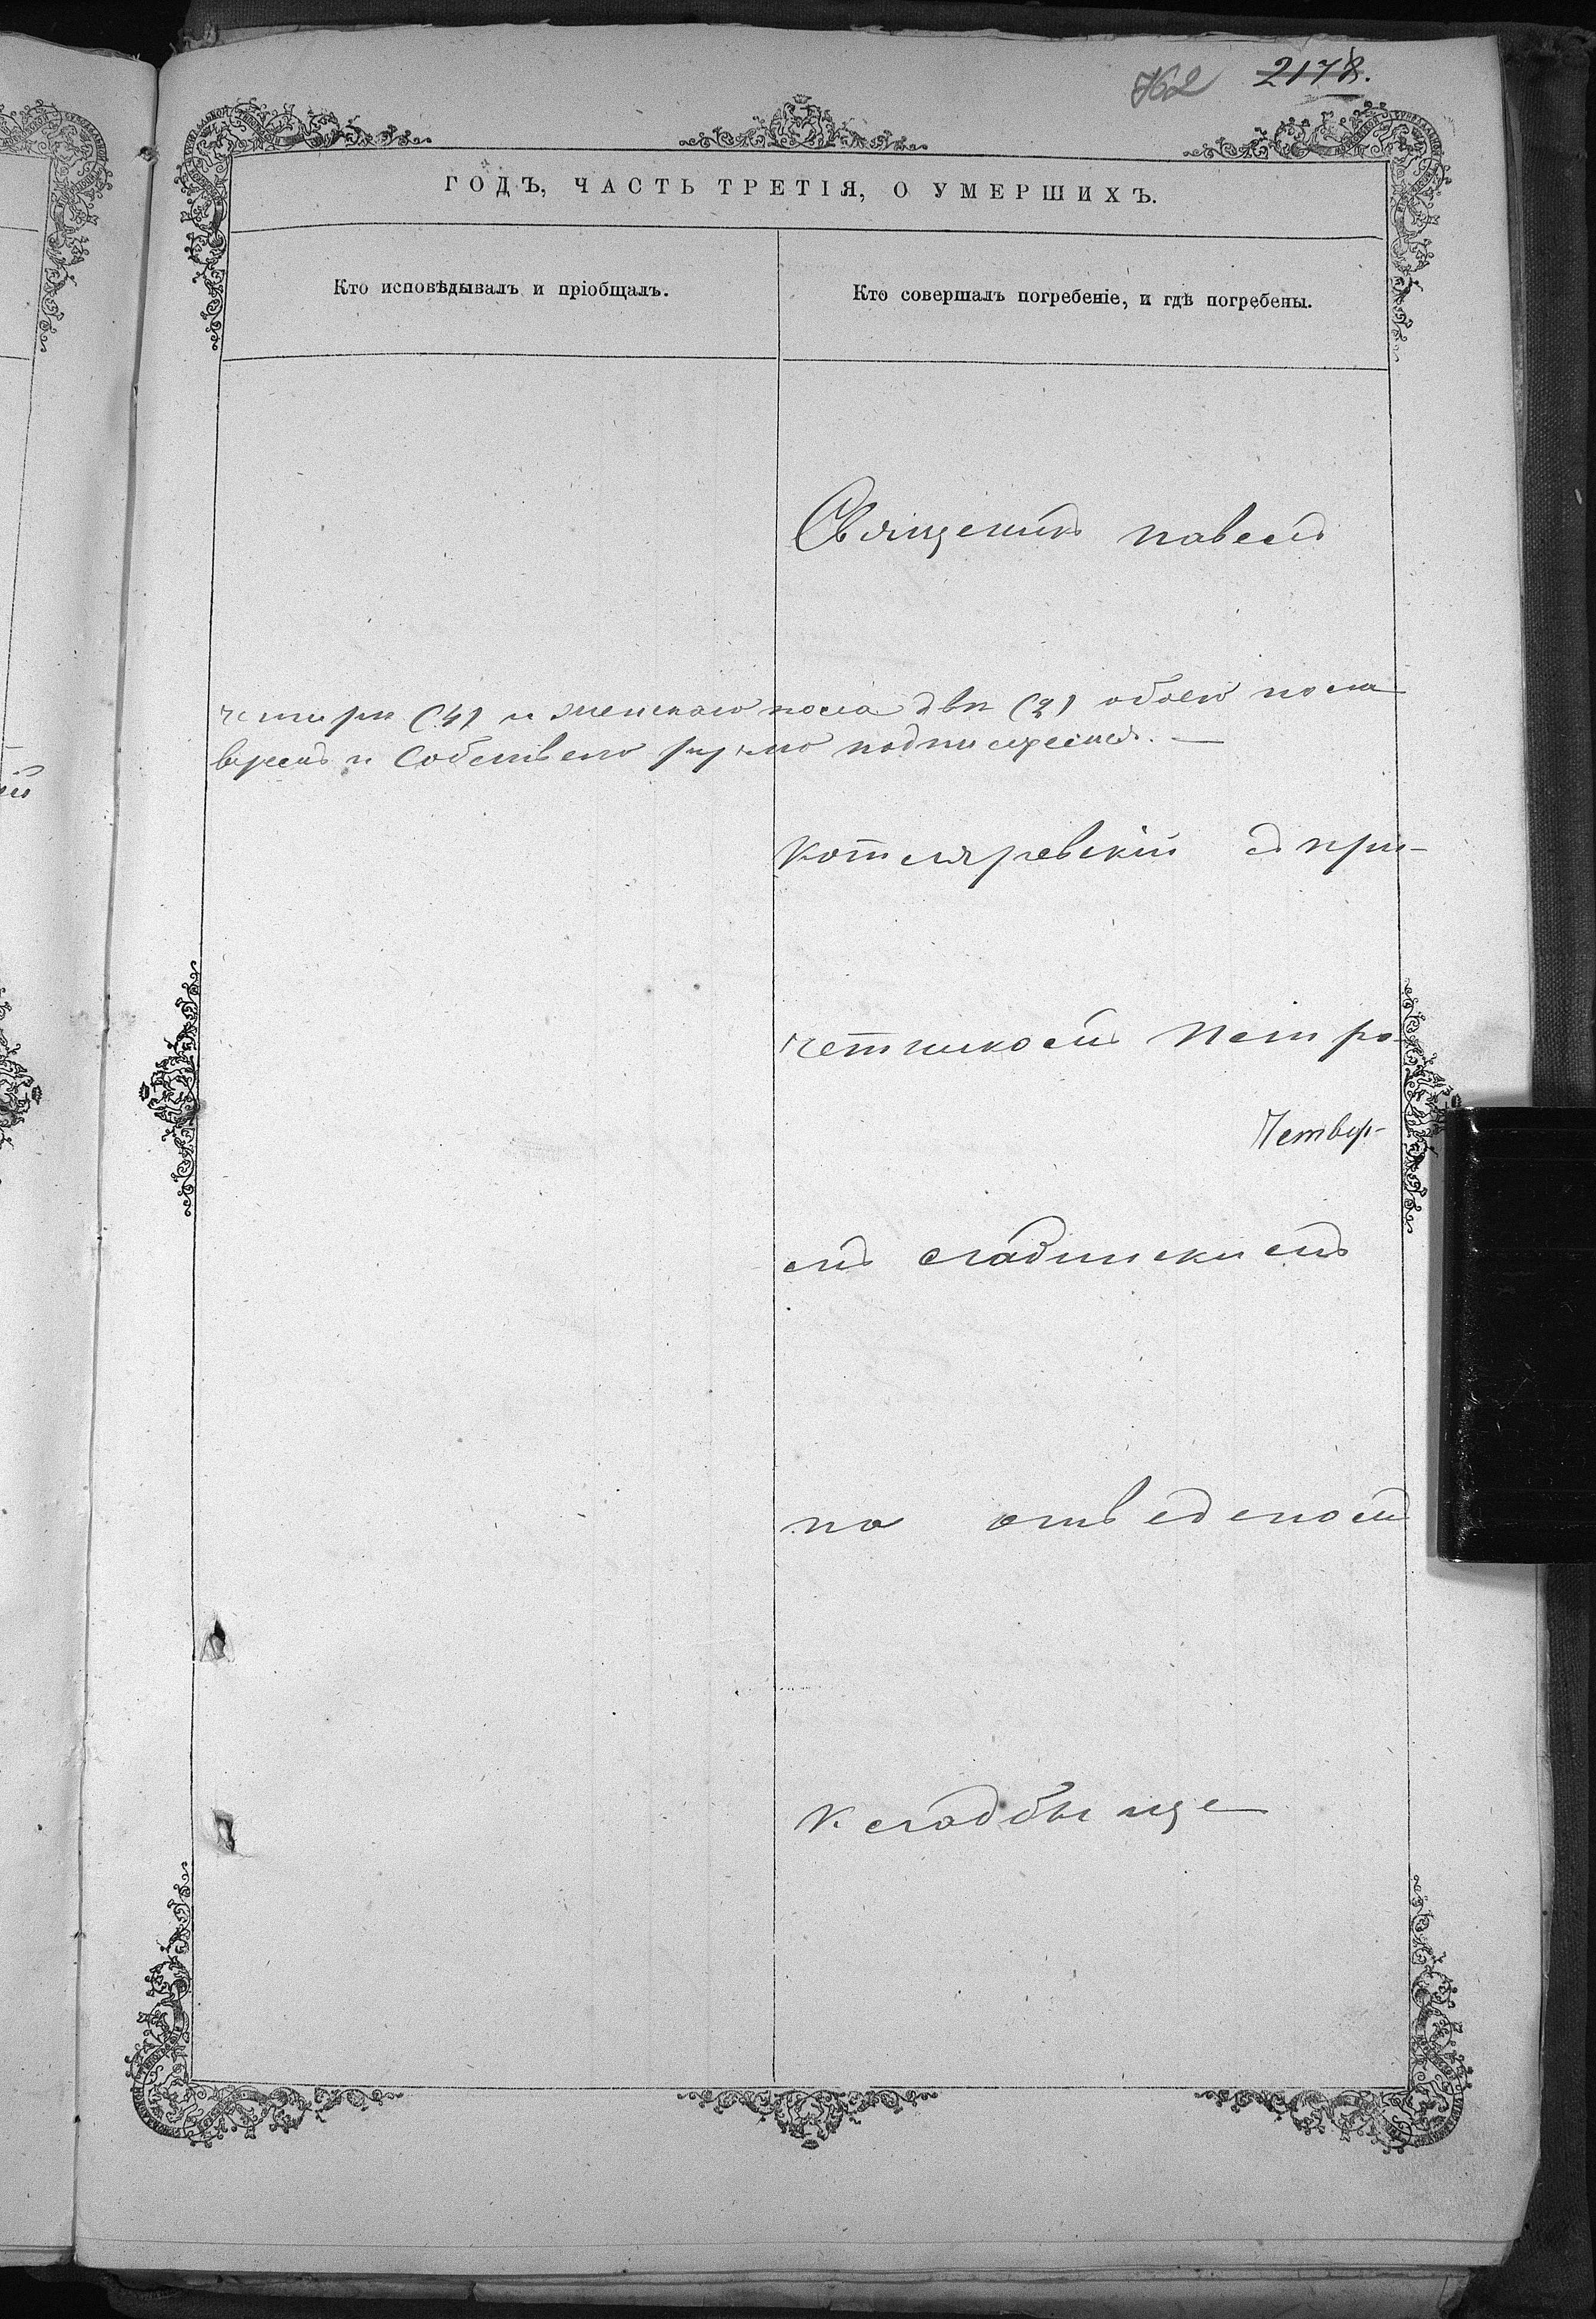 762 2178.
ГОДЪ, ЧАСТЬ ТРЕТІЯ, О УМЕРШИХЪ.
Кто исповѣдывалъ и пріобщалъ.
Кто совершалъ погребеніе, и гдѣ погребены.
Священикъ павелъ
четири (4) и женскаго пола двп (2) обоего пола
Собствено ручно подписуемся. —
Котляревскій съ при-
четникомъ Петро-
Четвер-
мъ сладинскимъ
на отведеномъ
кладбище